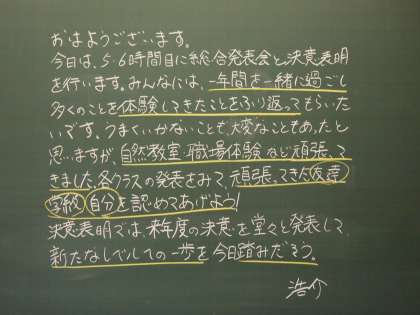 おはようございます。
今日は、5・6時間目に総合発表会と決意表明
を行います。みんなには、一年間を一緒に過ごし
多くのことを体験してきたことをふり返ってもらいた
いです。うまくいかないことや、大変なこともあったと
思いますが、自然教室・職場体験など頑張って
きました。各クラスの発表をみて、頑張ってきた友達
学級、自分を認めてあげよう!
決意表明では、来年度の決意を堂々と発表して、
新たなしての一歩を今日踏みだそう。
浩介